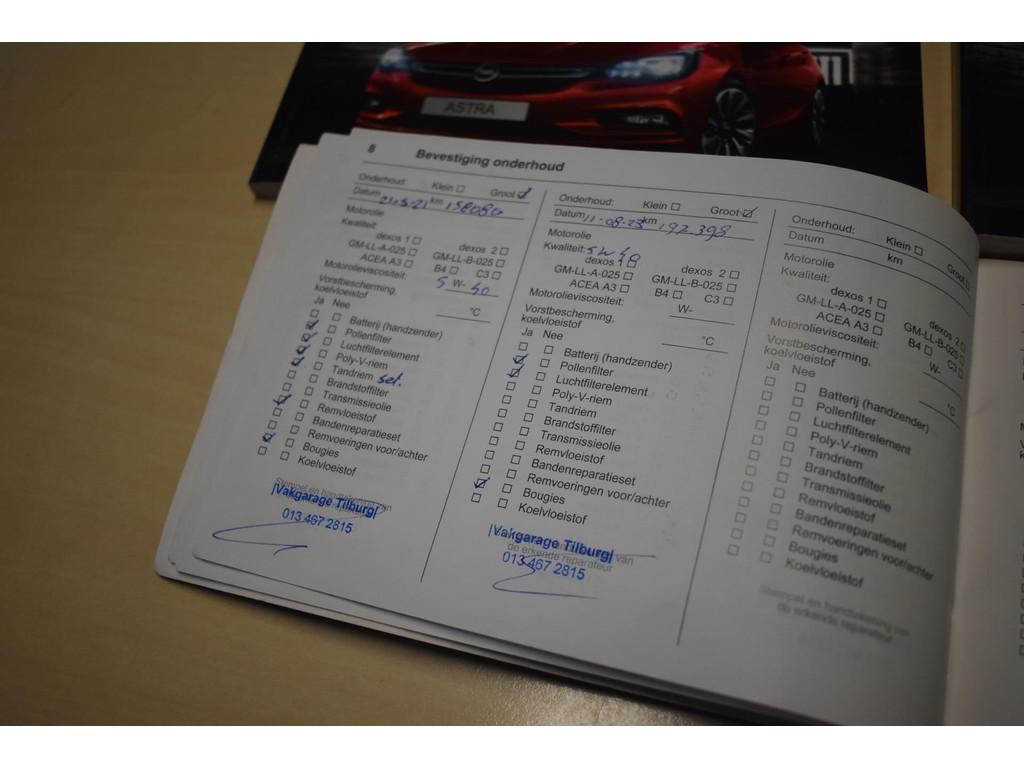 ASTRA
8 Bevestiging onderhoud
Onderhoud: Klein Groot
Datum 21-5-21 km 158080
Motorolie
Kwaliteit:
dexos 1 dexos 2
GM-LL-A-025 GM-LL-B-025
ACEA A3 B4 C3
Motorolieviscositeit: 5 W- 40
Vorstbescherming,
koelvloeistof °C
Ja Nee
Batterij (handzender)
Pollenfilter
Luchtfilterelement
Poly-V-riem
Tandriem set.
Brandstoffilter
Transmissieolie
Remvloeistof
Bandenreparatieset
Remvoeringen voor/achter
Bougies
Koelvloeistof
Stempel en handtekening van
|Vakgarage Tilburg|
013 467 2815
Onderhoud: Klein Groot
Datum 11-08-23 km 192.398
Motorolie
Kwaliteit: 5W40
dexos 1 dexos 2
GM-LL-A-025 GM-LL-B-025
ACEA A3 B4 C3
Motorolieviscositeit: W-
Vorstbescherming,
koelvloeistof °C
Ja Nee
Batterij (handzender)
Pollenfilter
Luchtfilterelement
Poly-V-riem
Tandriem
Brandstoffilter
Transmissieolie
Remvloeistof
Bandenreparatieset
Remvoeringen voor/achter
Bougies
Koelvloeistof
|Vakgarage Tilburg|
de erkende reparateur
013 467 2815
Onderhoud: Klein Groot
Datum km
Motorolie
Kwaliteit:
dexos 1 dexos 2
GM-LL-A-025 GM-LL-B-025
ACEA A3 B4 C3
Motorolieviscositeit: W-
Vorstbescherming,
koelvloeistof °C
Ja Nee
Batterij (handzender)
Pollenfilter
Luchtfilterelement
Poly-V-riem
Tandriem
Brandstoffilter
Transmissieolie
Remvloeistof
Bandenreparatieset
Remvoeringen voor/achter
Bougies
Koelvloeistof
Stempel en handtekening van
de erkende reparateur